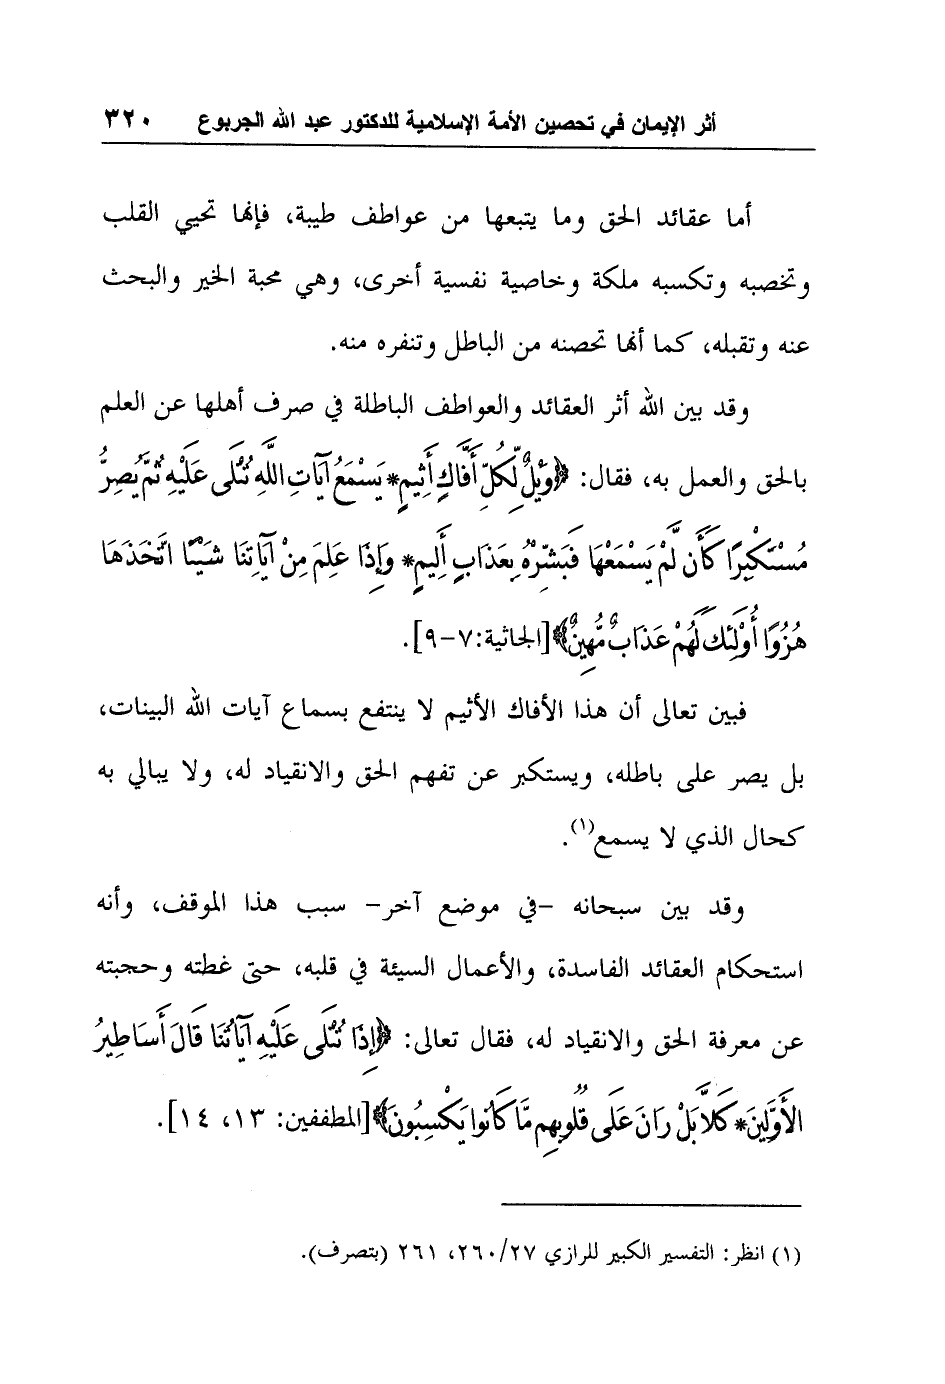 أثر الإيمان في تحصين الأمة الإسلامية للدكتور عبد الله الجربوع ٣٢٠
أما عقائد الحق وما يتبعها من عواطف طيبة، فإنها تحيي القلب
وتخصبه وتكسبه ملكة وخاصية نفسية أخرى، وهي محبة الخير والبحث
عنه وتقبله، كما أنها تحصنه من الباطل وتنفره منه.
وقد بين الله أثر العقائد والعواطف الباطلة في صرف أهلها عن العلم
بالحق والعمل به، فقال: ﴿وَيْلٌ لِّكُلِّ أَفَّاكٍ أَثِيمٍ * يَسْمَعُ آيَاتِ اللَّهِ تُتْلَى عَلَيْهِ ثُمَّ يُصِرُّ
مُسْتَكْبِرًا كَأَن لَّمْ يَسْمَعْهَا فَبَشِّرْهُ بِعَذَابٍ أَلِيمٍ * وَإِذَا عَلِمَ مِنْ آيَاتِنَا شَيْئًا اتَّخَذَهَا
هُزُوًا أُوْلَئِكَ لَهُمْ عَذَابٌ مُّهِينٌ﴾ [الجاثية: ٧-٩].
فبين تعالى أن هذا الأفاك الأثيم لا ينتفع بسماع آيات الله البينات،
بل يصر على باطله، ويستكبر عن تفهم الحق والانقياد له، ولا يبالي به
كحال الذي لا يسمع(١).
وقد بين سبحانه -في موضع آخر- سبب هذا الموقف، وأنه
استحكام العقائد الفاسدة، والأعمال السيئة في قلبه، حتى غطته وحجبته
عن معرفة الحق والانقياد له، فقال تعالى: ﴿إِذَا تُتْلَى عَلَيْهِ آيَاتُنَا قَالَ أَسَاطِيرُ
الأَوَّلِينَ * كَلاَّ بَلْ رَانَ عَلَى قُلُوبِهِم مَّا كَانُوا يَكْسِبُونَ﴾ [المطففين: ١٣، ١٤].
(١) انظر: التفسير الكبير للرازي ٢٦٠/٢٧، ٢٦١ (بتصرف).